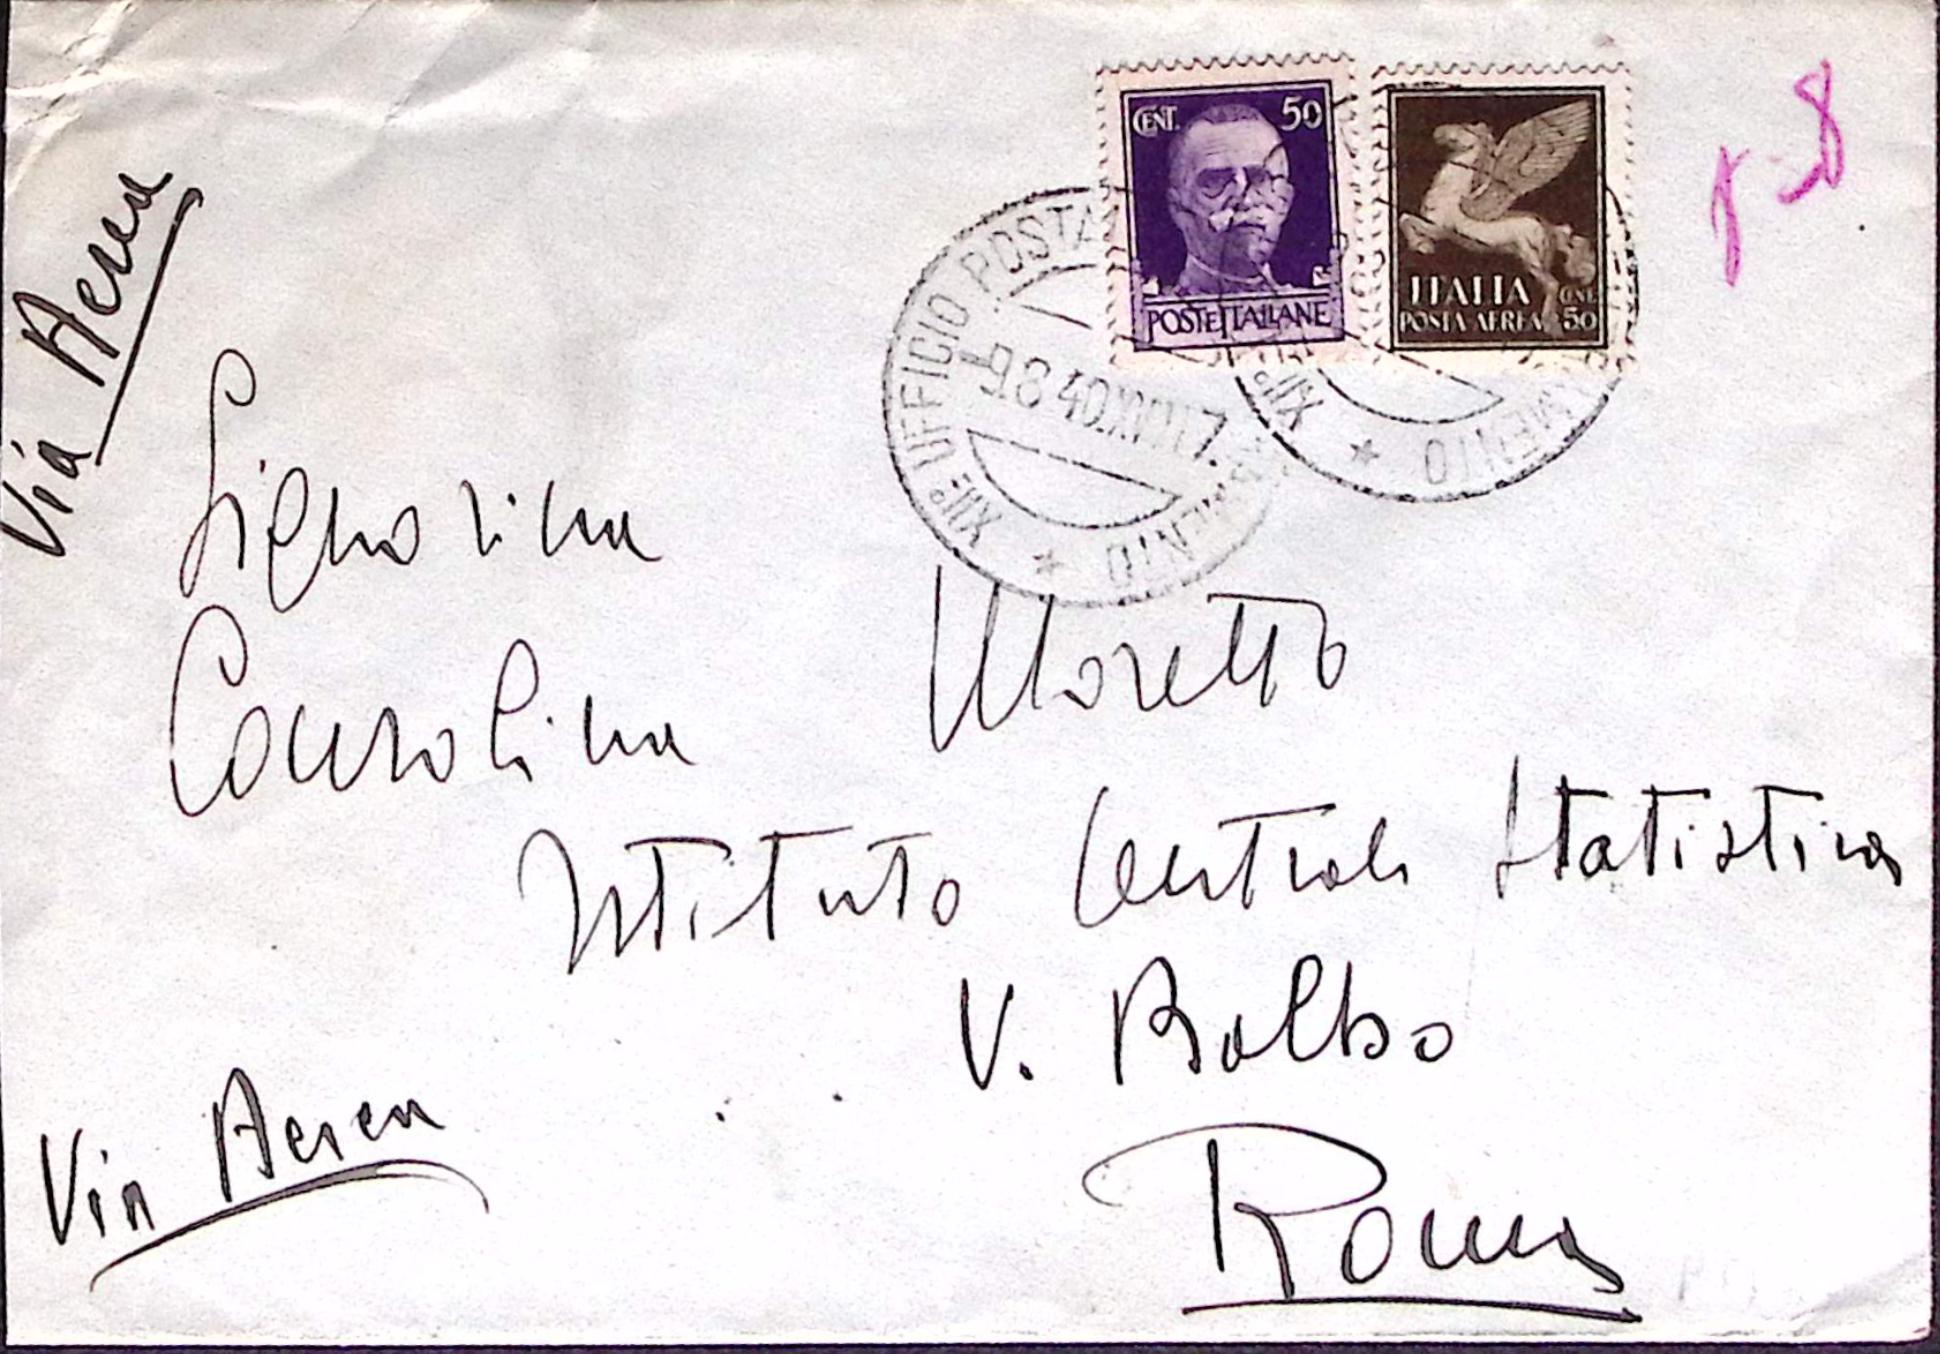 Via Aerea
CENT. 50
POSTE ITALIANE
ITALIA CENT. 50
POSTA AEREA
XIII° UFFICIO POSTA
9.8.40.XVIII 7.
XII
MENTO
Signorina
Consolina Moretto
Istituto Centrale Statistica
V. Balbo
Via Aerea
Roma